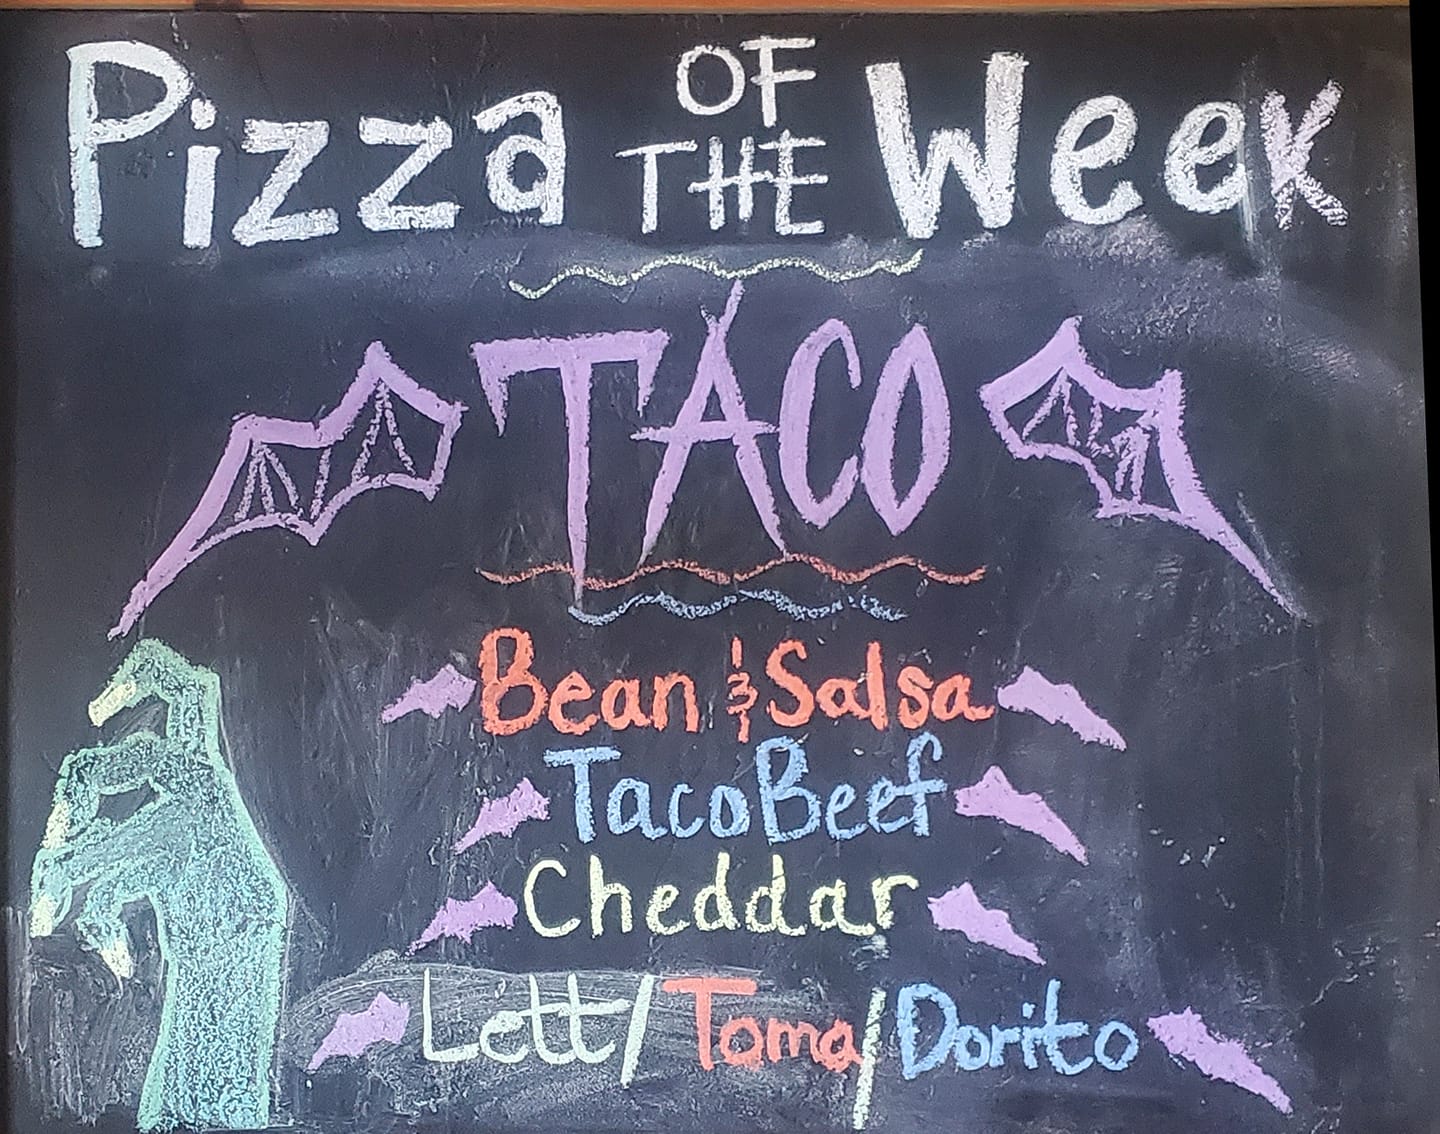 Pizza OF THE Week
TACO
Bean & Salsa
Taco Beef
Cheddar
Lett/Toma/Dorito